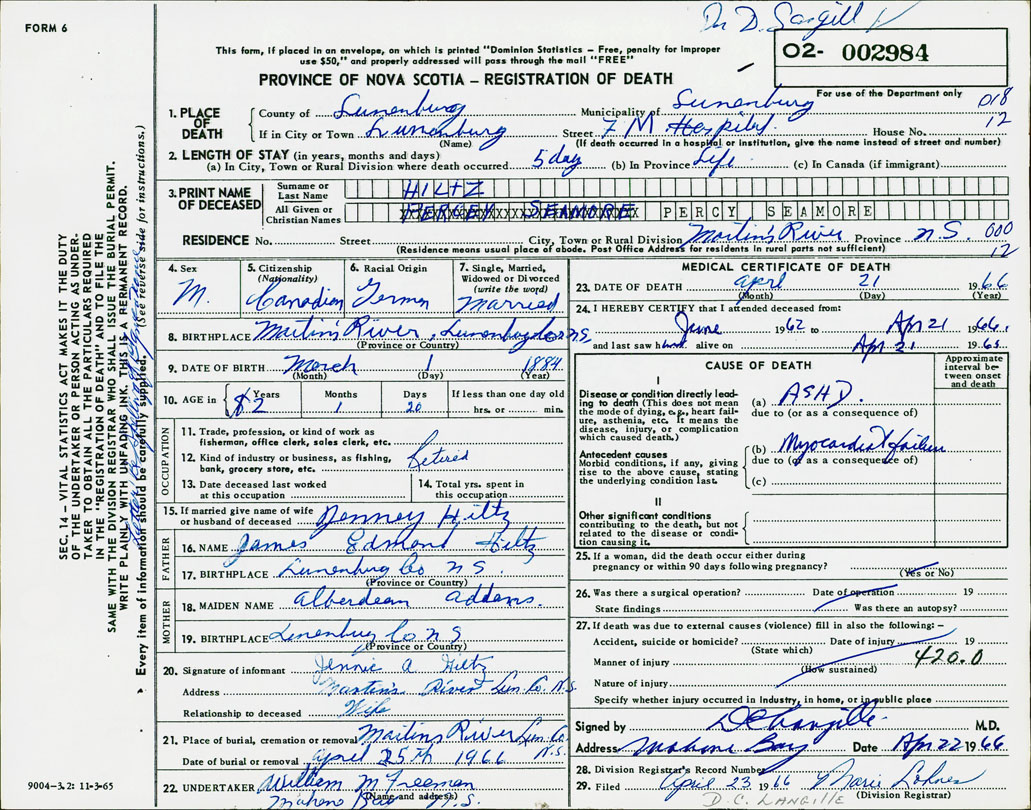 FORM 6
Dr D. Langill
This form, if placed in an envelope, on which is printed "Dominion Statistics – Free, penalty for improper
use $50," and properly addressed will pass through the mail "FREE"
02- 002984
PROVINCE OF NOVA SCOTIA – REGISTRATION OF DEATH
For use of the Department only
1. PLACE OF DEATH
County of Lunenburg Municipality of Lunenburg 018
If in City or Town Lunenburg Street F M Hospital House No. 12
(Name) (If death occurred in a hospital or institution, give the name instead of street and number)
2. LENGTH OF STAY (in years, months and days)
(a) In City, Town or Rural Division where death occurred 5 day (b) In Province Life (c) In Canada (if immigrant)
3. PRINT NAME OF DECEASED
Surname or Last Name HILTZ
All Given or Christian Names SEAMORE PERCY SEAMORE
RESIDENCE No. Street City, Town or Rural Division Martin's River Province N.S. 000
(Residence means usual place of abode. Post Office Address for residents in rural parts not sufficient) 12
4. Sex
M.
5. Citizenship
(Nationality)
Canadian
6. Racial Origin
German
7. Single, Married,
Widowed or Divorced
(write the word)
Married
8. BIRTHPLACE Martin's River, Lunenburg Co N.S.
(Province or Country)
9. DATE OF BIRTH March 1 1884
(Month) (Day) (Year)
10. AGE in Years Months Days If less than one day old
82 1 20 hrs. or min.
OCCUPATION
11. Trade, profession, or kind of work as
fisherman, office clerk, sales clerk, etc.
12. Kind of industry or business, as fishing,
bank, grocery store, etc.
Retired
13. Date deceased last worked
at this occupation
14. Total yrs. spent in
this occupation
15. If married give name of wife
or husband of deceased Jenney Hiltz
FATHER
16. NAME James Edmond Hiltz
17. BIRTHPLACE Lunenburg Co N S.
(Province or Country)
MOTHER
18. MAIDEN NAME Alberdean Addams.
19. BIRTHPLACE Lunenburg Co N S
(Province or Country)
20. Signature of informant Jennie A Hiltz
Address Martin's River Lun. Co. N.S.
Relationship to deceased Wife
21. Place of burial, cremation or removal Martins River Lun. Co.
Date of burial or removal April 25th 1966 N.S.
22. UNDERTAKER William M Freeman
(Name and address)
Mahone Bay N.S.
MEDICAL CERTIFICATE OF DEATH
23. DATE OF DEATH April 21 1966
(Month) (Day) (Year)
24. I HEREBY CERTIFY that I attended deceased from:
June 1962 to Apr 21 1966.
and last saw h alive on Apr 21 196
CAUSE OF DEATH
Approximate
interval be-
tween onset
and death
I
Disease or condition directly lead-
ing to death (This does not mean
the mode of dying, e.g., heart fail-
ure, asthenia, etc. It means the
disease, injury, or complication
which caused death.)
(a) ASHD.
due to (or as a consequence of)
Antecedent causes
Morbid conditions, if any, giving
rise to the above cause, stating
the underlying condition last.
(b) Myocardial failure
due to (or as a consequence of)
(c)
II
Other significant conditions
contributing to the death, but not
related to the disease or condi-
tion causing it.
25. If a woman, did the death occur either during
pregnancy or within 90 days following pregnancy?
(Yes or No)
26. Was there a surgical operation? Date of operation 19
State findings Was there an autopsy?
27. If death was due to external causes (violence) fill in also the following: –
Accident, suicide or homicide? Date of injury 19
(State which)
Manner of injury 420.0
(How sustained)
Nature of injury
Specify whether injury occurred in Industry, in home, or in public place
Signed by DC Langille M.D.
Address Mahone Bay Date Apr 22 1966
28. Division Registrar's Record Number
29. Filed April 23 1966 Marie Lohnes
(Division Registrar)
D. C. LANGILLE
SEC. 14 – VITAL STATISTICS ACT MAKES IT THE DUTY
OF THE UNDERTAKER OR PERSON ACTING AS UNDER-
TAKER TO OBTAIN ALL THE PARTICULARS REQUIRED
IN THE "REGISTRATION OF DEATH" AND TO FILE THE
SAME WITH THE DIVISION REGISTRAR WHO SHALL ISSUE THE BURIAL PERMIT.
WRITE PLAINLY WITH UNFADING INK. THIS IS A PERMANENT RECORD.
Every item of information should be carefully supplied. (See reverse side for instructions.)
9004-3.2: 11-3-65